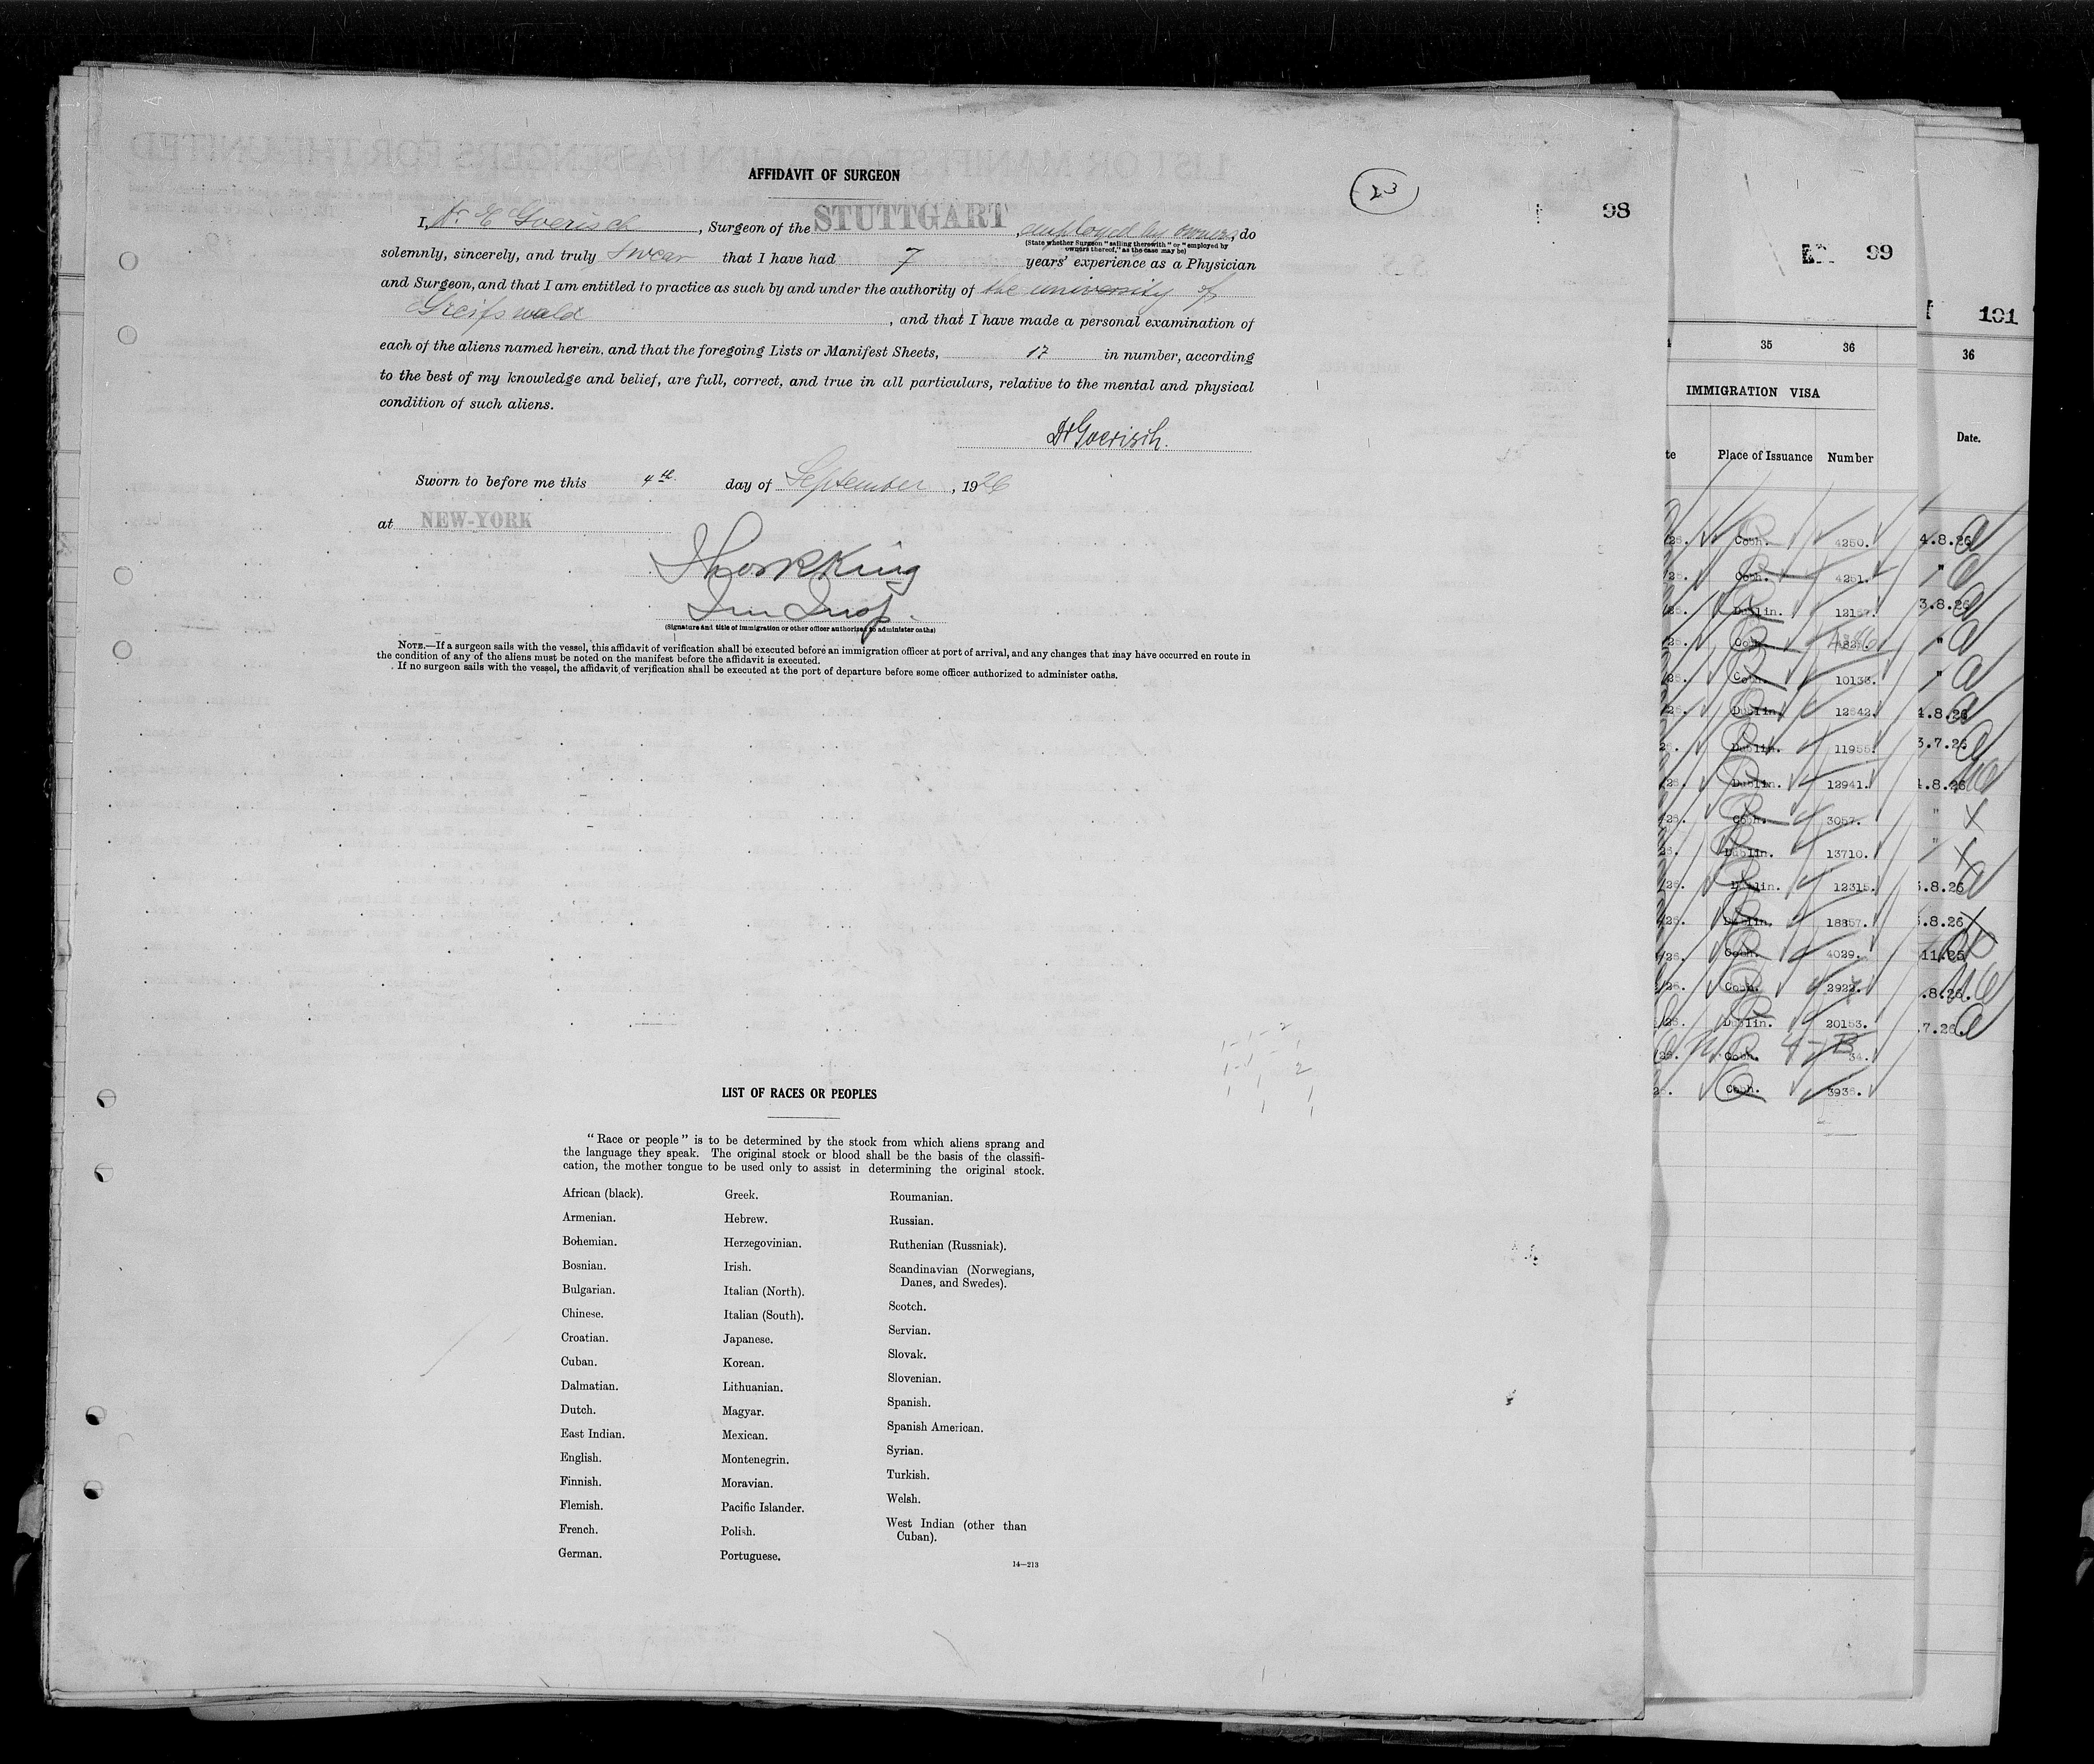 AFFIDAVIT OF SURGEON
23
98
I, Dr E Goerisch, Surgeon of the STUTTGART, employed by owners, do
(State whether Surgeon "sailing therewith" or "employed by
owners thereof," as the case may be)
solemnly, sincerely, and truly swear that I have had 7 years' experience as a Physician
and Surgeon, and that I am entitled to practice as such by and under the authority of the university of
Greifswald, and that I have made a personal examination of
each of the aliens named herein, and that the foregoing Lists or Manifest Sheets, 17 in number, according
to the best of my knowledge and belief, are full, correct, and true in all particulars, relative to the mental and physical
condition of such aliens.
Dr Goerisch.
Sworn to before me this 4th. day of September, 1926
at NEW-YORK
King
Im Insp.
(Signature and title of immigration or other officer authorized to administer oaths)
NOTE.—If a surgeon sails with the vessel, this affidavit of verification shall be executed before an immigration officer at port of arrival, and any changes that may have occurred en route in
the condition of any of the aliens must be noted on the manifest before the affidavit is executed.
If no surgeon sails with the vessel, the affidavit of verification shall be executed at the port of departure before some officer authorized to administer oaths.
LIST OF RACES OR PEOPLES
"Race or people" is to be determined by the stock from which aliens sprang and
the language they speak. The original stock or blood shall be the basis of the classifi-
cation, the mother tongue to be used only to assist in determining the original stock.
African (black).
Armenian.
Bohemian.
Bosnian.
Bulgarian.
Chinese.
Croatian.
Cuban.
Dalmatian.
Dutch.
East Indian.
English.
Finnish.
Flemish.
French.
German.
Greek.
Hebrew.
Herzegovinian.
Irish.
Italian (North).
Italian (South).
Japanese.
Korean.
Lithuanian.
Magyar.
Mexican.
Montenegrin.
Moravian.
Pacific Islander.
Polish.
Portuguese.
Roumanian.
Russian.
Ruthenian (Russniak).
Scandinavian (Norwegians,
Danes, and Swedes).
Scotch.
Servian.
Slovak.
Slovenian.
Spanish.
Spanish American.
Syrian.
Turkish.
Welsh.
West Indian (other than
Cuban).
14—213
99
35 36
IMMIGRATION VISA
Place of Issuance Number
Cobh. 4250.
Cobh. 4251.
Dublin. 12157.
Cobh.
Cobh. 10133.
Dublin. 12842.
Dublin. 11955.
Dublin. 12941.
Cobh. 3057.
Dublin. 13710.
Dublin. 12315.
Dublin. 18857.
Cobh. 4029.
Cobh. 2922.
Dublin. 20153.
Cobh. 34.
Cobh. 3935.
101
36
Date.
4.8.26
"
3.8.26
"
"
4.8.26
3.7.26
4.8.26
"
"
.8.26
.8.26
11.25
.8.26.
7.26